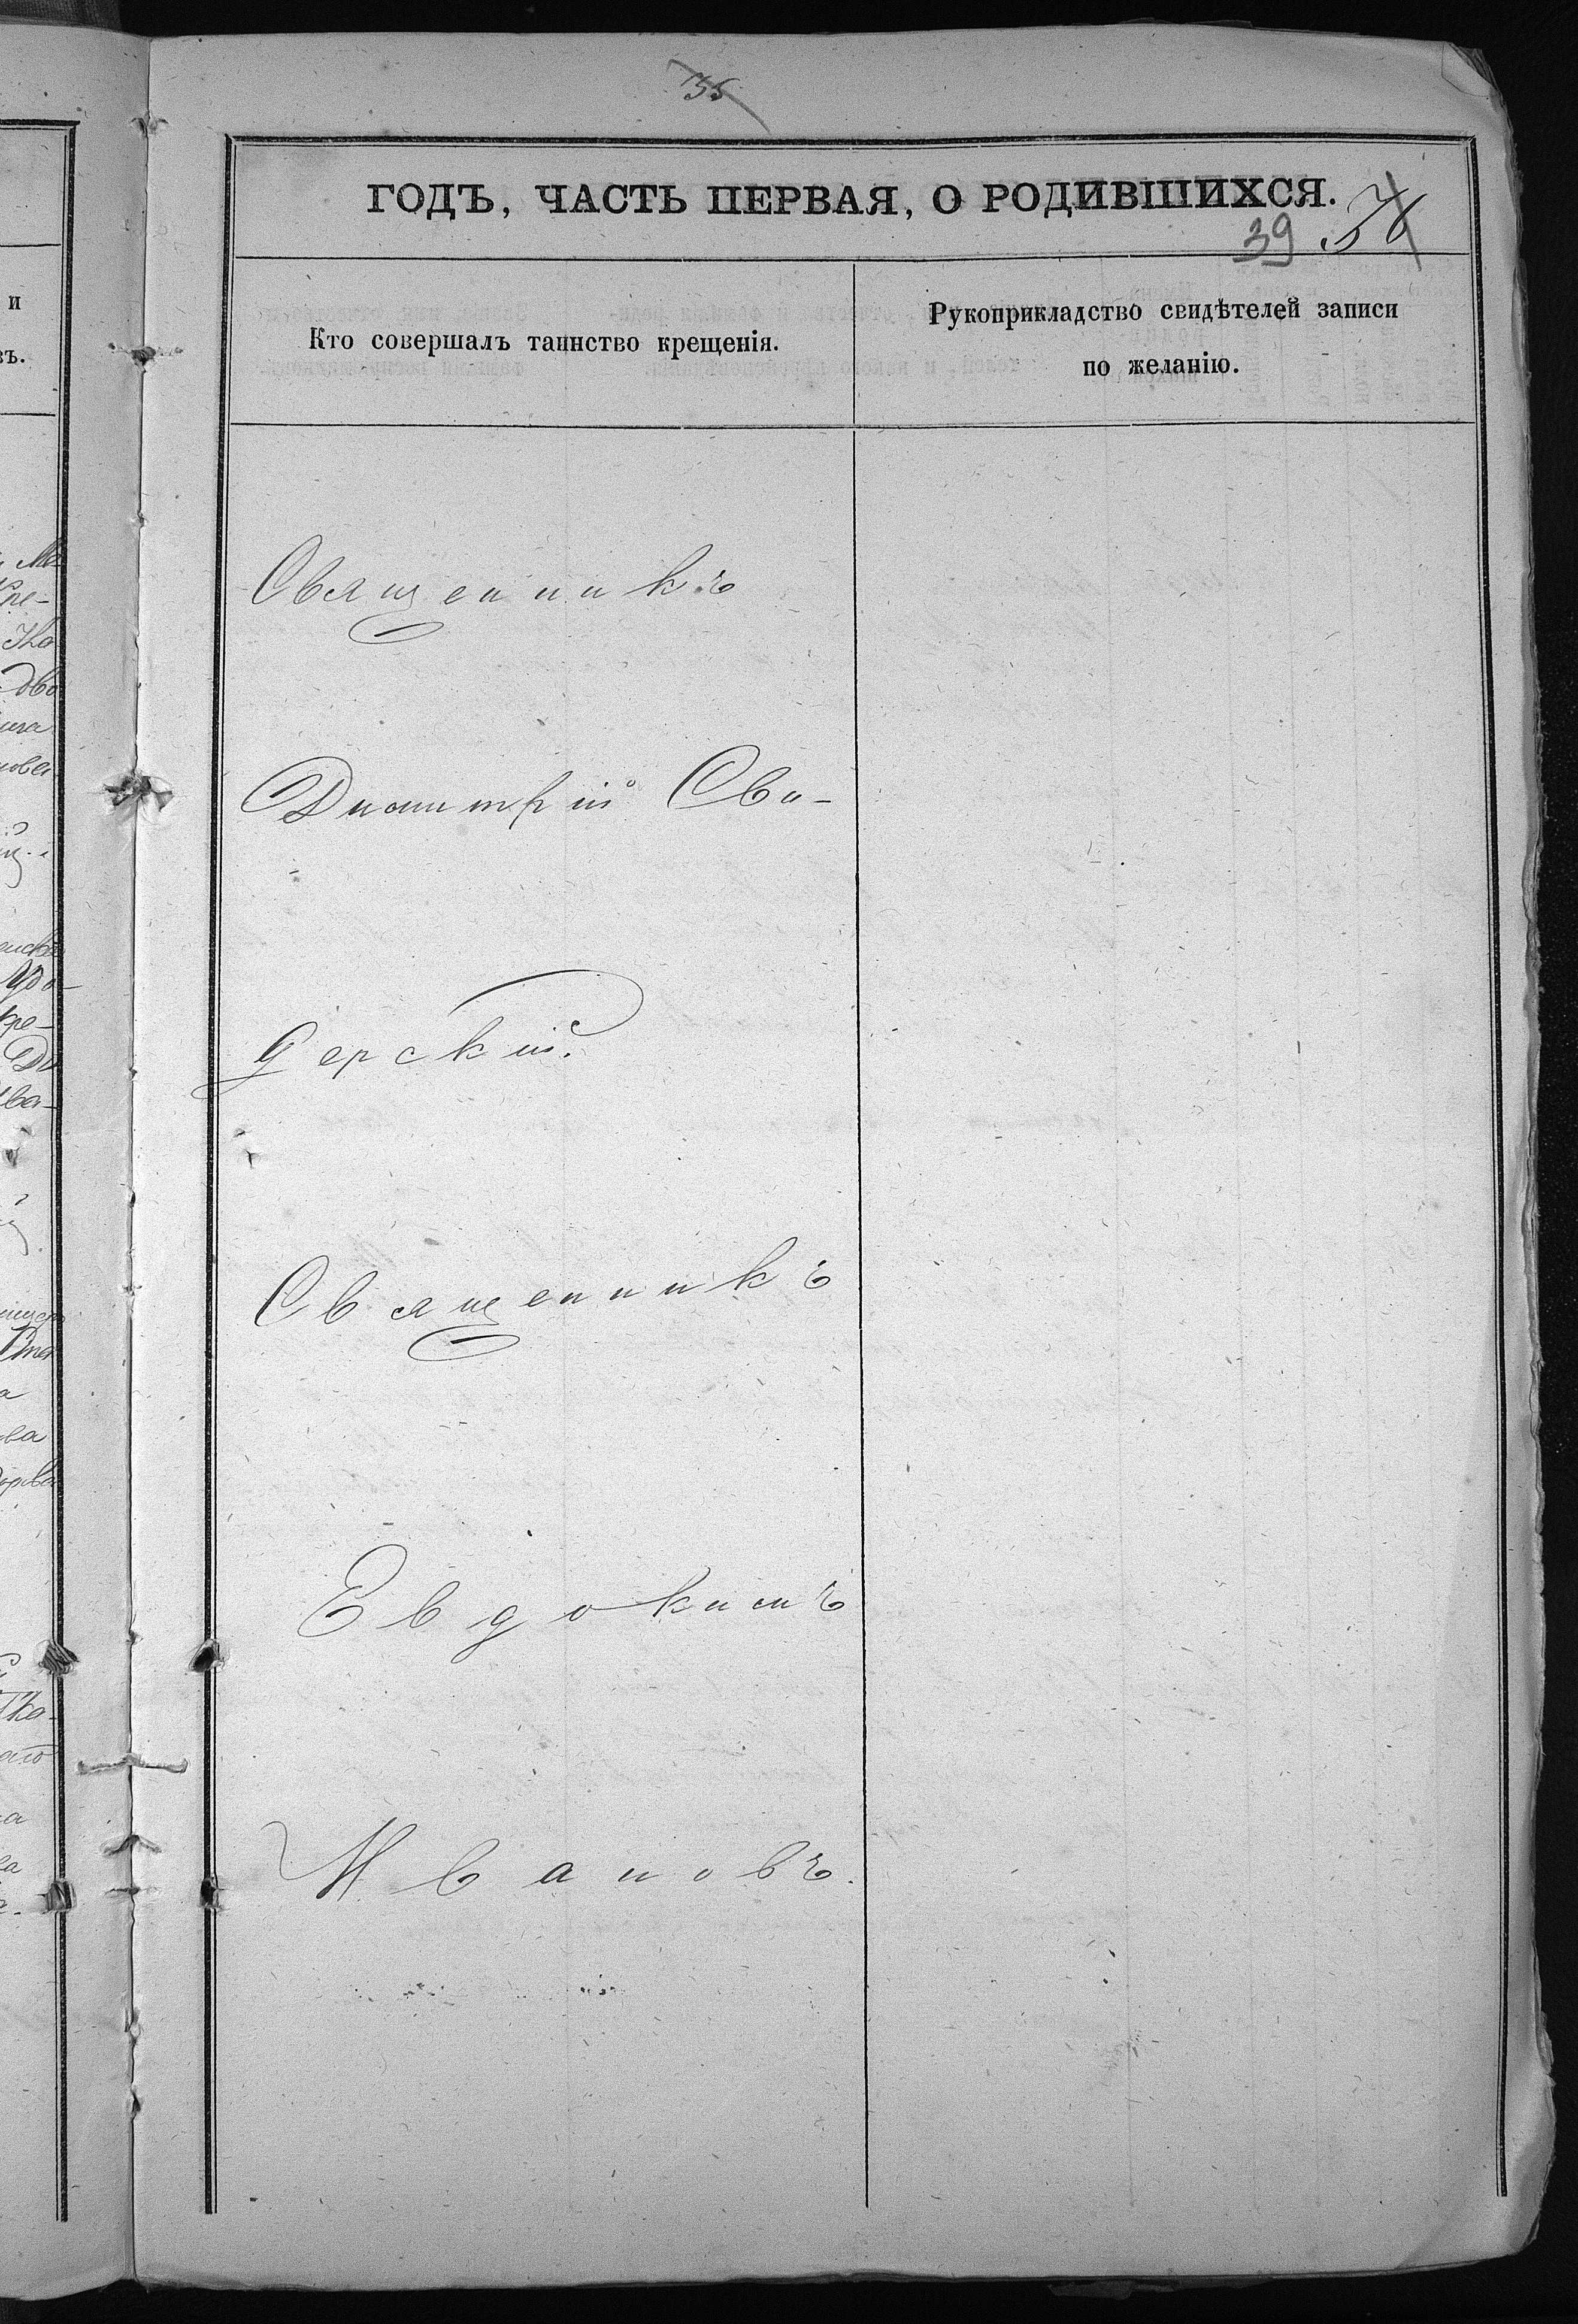 35
ГОДЪ, ЧАСТЬ ПЕРВАЯ, О РОДИВШИХСЯ.
39
и
въ.
Кто совершалъ таинство крещенія.
Рукоприкладство свидѣтелей записи
по желанію.
Священникъ
Димитрій Сви-
дерскій.
Священникъ
Евдокимъ
Ивановъ.